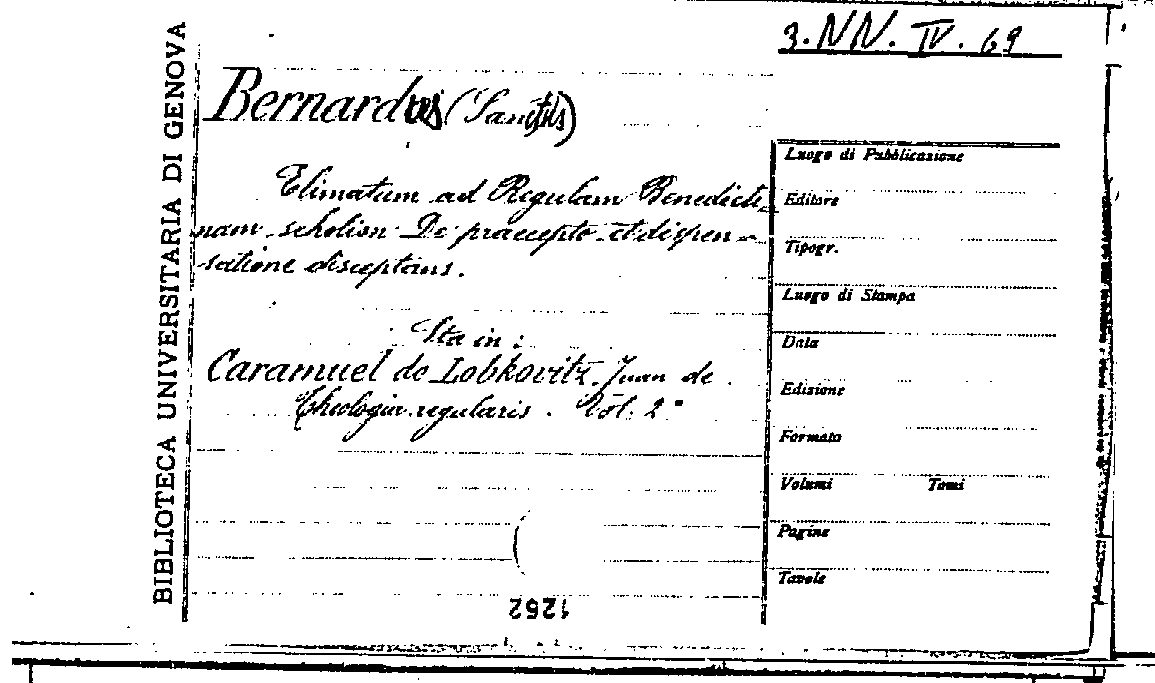 3. NN. IV. 69
BIBLIOTECA UNIVERSITARIA DI GENOVA
Bernardus (Sanctus)
Elimatum ad Regulam Benedicti-
nam scholion De praecepto et dispen-
satione disceptans.
Sta in:
Caramuel de Lobkovitz, Juan de
Theologia regularis. Vol. 2°
Luogo di Pubblicazione
Editore
Tipogr.
Luogo di Stampa
Data
Edizione
Formato
Volumi Tomi
Pagine
Tavole
1262